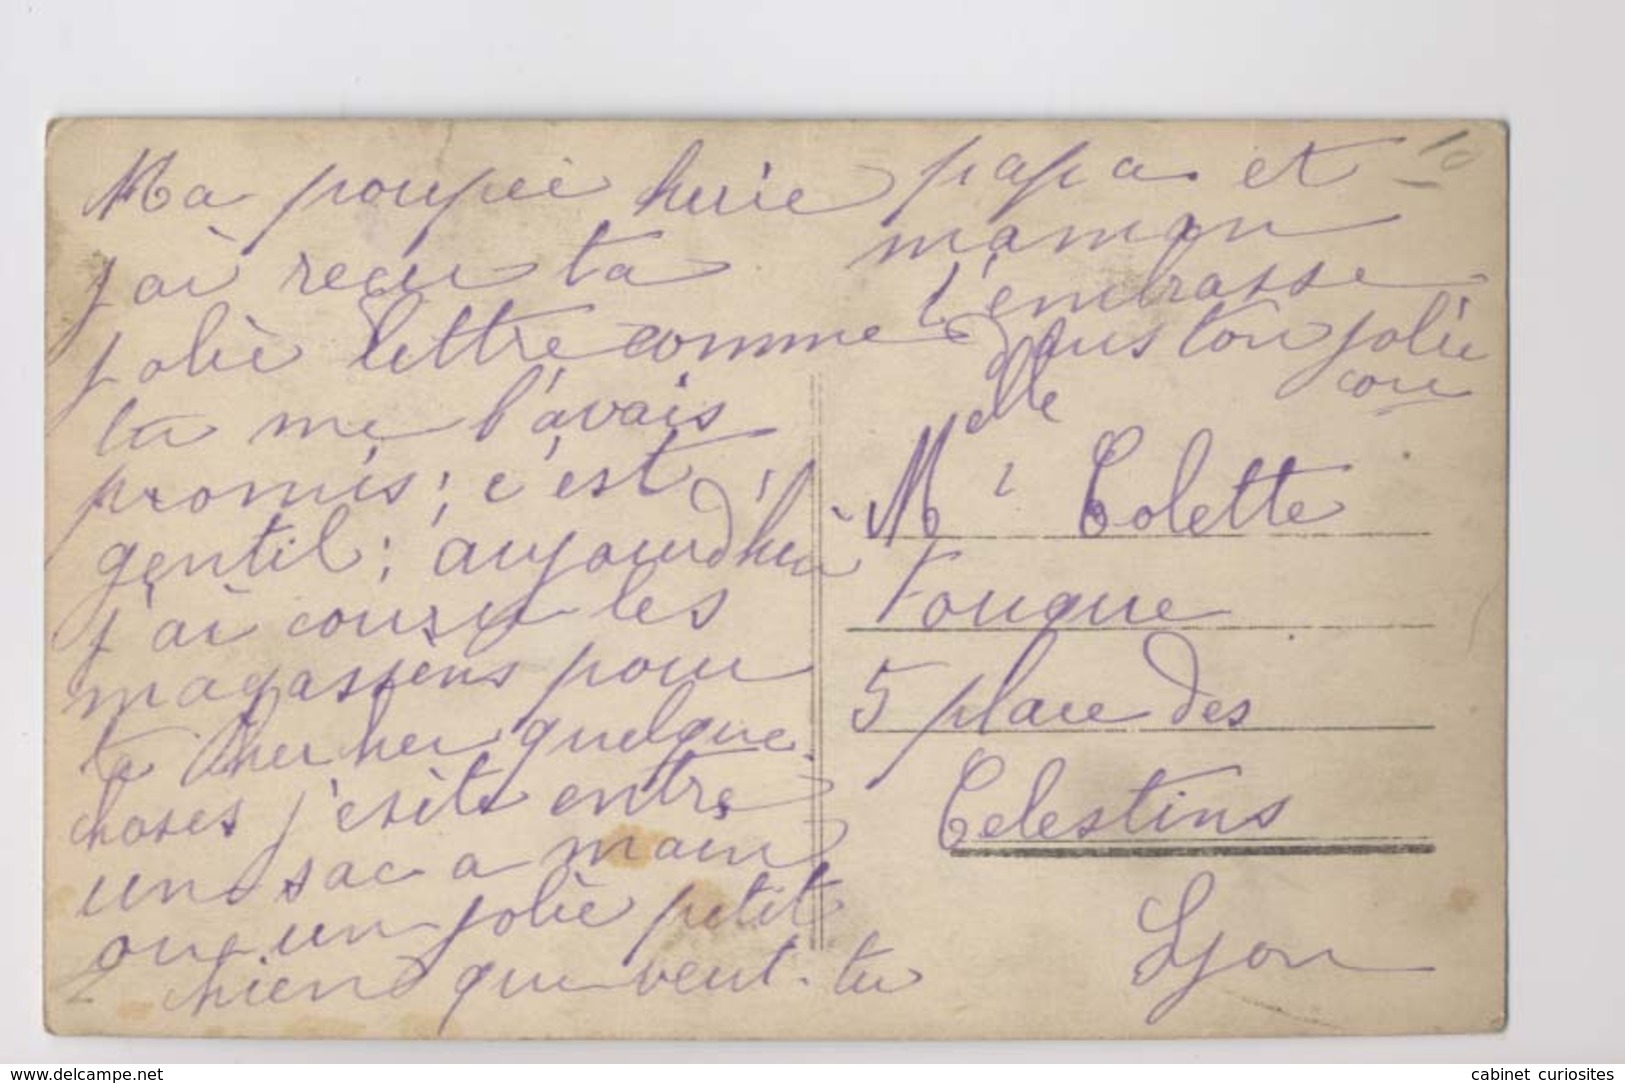 Ma poupée herie
j'ai reçu ta
jolie lettre comme
tu me l'avais
promis; c'est
gentil; aujourd'hui
j'ai couru les
magassiens pour
te chercher quelque
choses j'esite entre
un sac a main
ou un jolie petit
chien que veut-tu
papa et
maman
t'embrasse
dans ton jolie
cou
10
Melle Colette
Fouque
5 place des
Celestins
Lyon
www.delcampe.net
cabinet curiosites